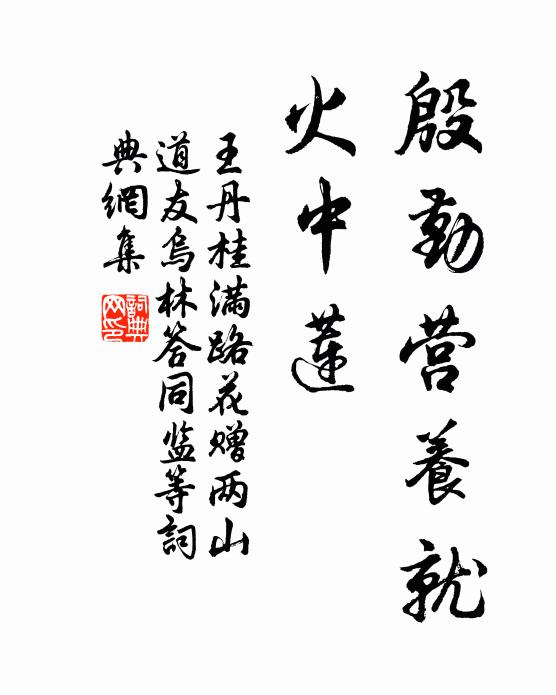 殷勤营養就
火中蓮
王丹桂满路花赠两山
道友烏林答同监等詞
典網集
詞典网印